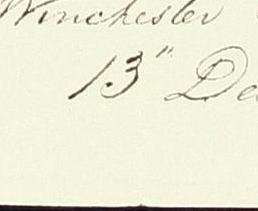 Winchester
13" De